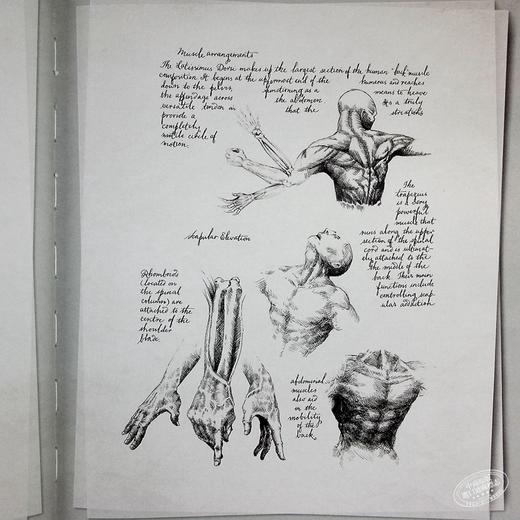 Muscle arrangements
The Latissimus Dorsi makes up the largest section of the human "back" muscle
composition. It begins at the uppermost end of the humerous and reaches
down to the pelvis, functioning as a means to heave
the appendage across the abdomen It's a truly
versatile tendon in that the striations
provide a
completely
mobile circle of
motion.
The
trapezius
is a very
powerful
muscle that
runs along the upper
section of the spinal
cord and is ultimat-
ely attached to the
the middle of the
back. Their main
functions include
controlling scap-
ular adduction
Scapular Elevation
Rhomboids
(located on
the spinal
column) are
attached to the
centre of the
shoulder
blade.
abdominal
muscles
also aid
in the
mobility
of the
back.